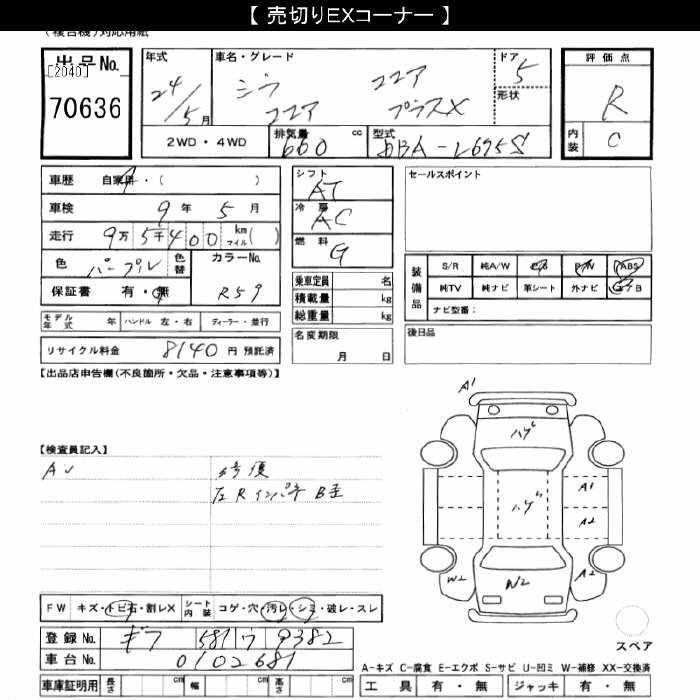 【 売切りEXコーナー 】
(複合機)対応用紙
出品No.
[2040]
70636
年式
24/5月
車名・グレード
ココア
ココア プラスX
ドア
5
形状
評価点
R
内装
C
2WD・4WD
排気量 660 cc
型式 DBA-L675S
車歴 自家用・( )
車検 9年 5月
走行 9万5千400 km マイル( )
色 パープル 色替
カラーNo. R59
保証書 有・無
モデル年式 年 ハンドル 左・右 ディーラー・並行
リサイクル料金 8140 円 預託済
シフト AT
冷房 AC
燃料 G
乗車定員 名
積載量 kg
総重量 kg
名変期限 月 日
セールスポイント
装備品
S/R 純A/W P/S P/W ABS
純TV 純ナビ 革シート 外ナビ エアB
ナビ型番:
後日品
【出品店申告欄(不良箇所・欠品・注意事項等)】
【検査員記入】
A1
ハゲ
ハゲ
A1
A2
A2
W2
W2
FW キズ・トビ石・割レX シート内装 コゲ・穴・汚レ・シミ・破レ・スレ
登録No. ギフ 581 ワ 9382
車台No. 0102681
スペア
A-キズ C-腐食 E-エクボ S-サビ U-凹ミ W-補修 XX-交換済
車庫証明用 長さ cm 幅 cm 高さ cm
工具 有・無 ジャッキ 有・無